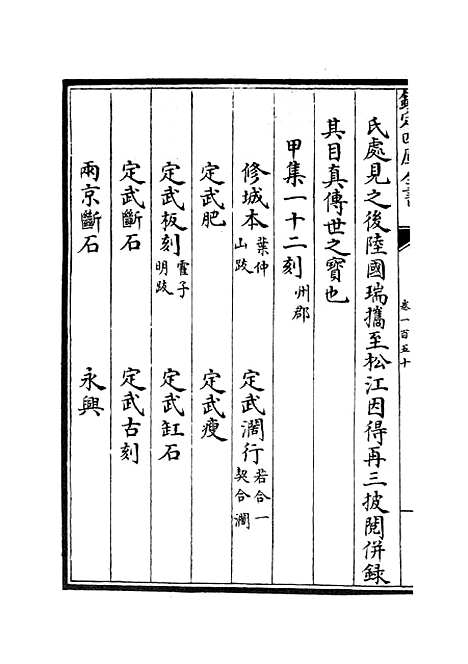 欽定四庫全書
卷一百五十
氏處見之後陸國瑞攜至松江因得再三披閱併録
其目真傳世之寶也
甲集一十二刻州郡
修城本葉仲山跋 定武濶行若合一契合濶
定武肥 定武瘦
定武板刻霍子明跋 定武缸石
定武斷石 定武古刻
兩京斷石 永興